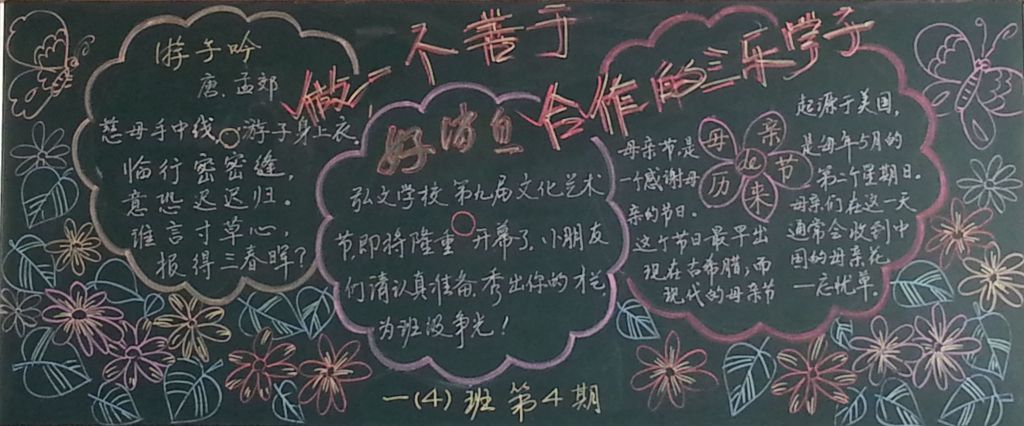 做一不善于
合作的三乐学子
游子吟
唐.孟郊
慈母手中线,游子身上衣.
临行密密缝,
意恐迟迟归。
谁言寸草心,
报得三春晖?
好消息
弘文学校第九届文化艺术
节即将隆重开幕了,小朋友
们请认真准备,秀出你的才艺,
为班级争光!
母亲节
历来
母亲节是
一个感谢母
亲的节日。
这个节日最早出
现在古希腊,而
现代的母亲节
起源于美国,
是每年5月的
第二个星期日。
母亲们在这一天
通常会收到中
国的母亲花
一忘忧草。
一(4)班第4期